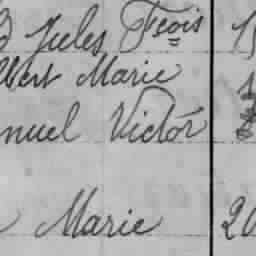 Jules Feois 1
lbert Marie
nuel Victor
Marie 20